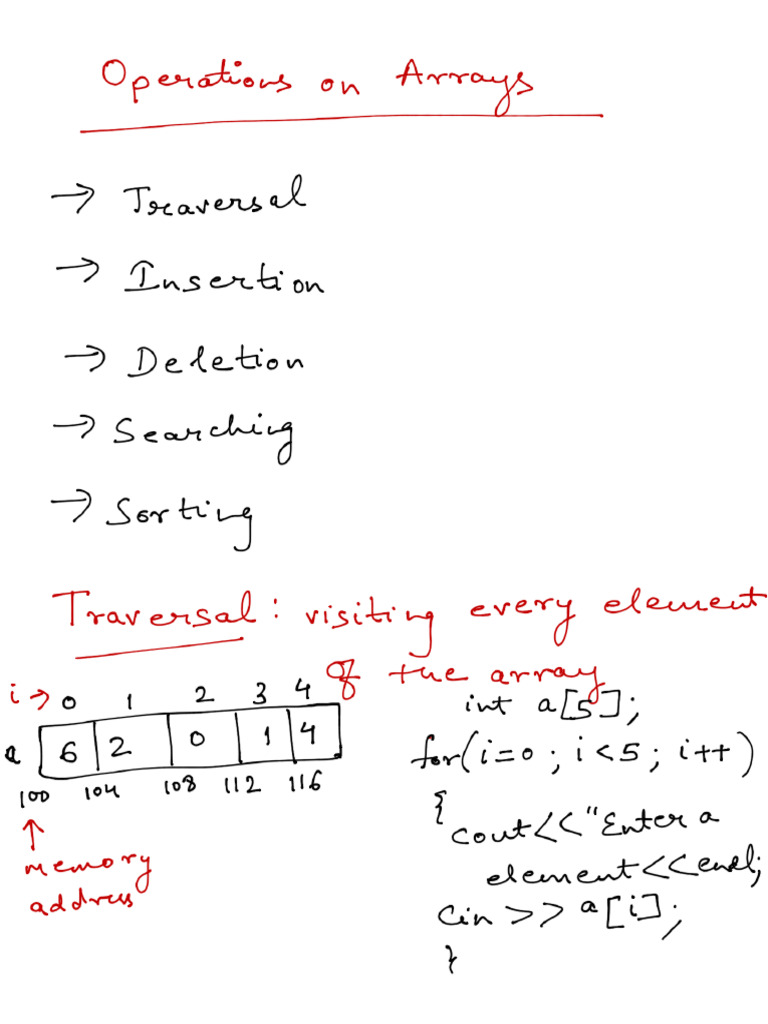 Operations on Arrays
→ Traversal
→ Insertion
→ Deletion
→ Searching
→ Sorting
Traversal: visiting every element
of the array
i→ 0 1 2 3 4
a 6 2 0 1 4
100 104 108 112 116
↑
memory
address
int a[5];
for(i=0 ; i<5 ; i++)
{
cout<<"Enter a
element<<endl;
cin >> a[i];
}